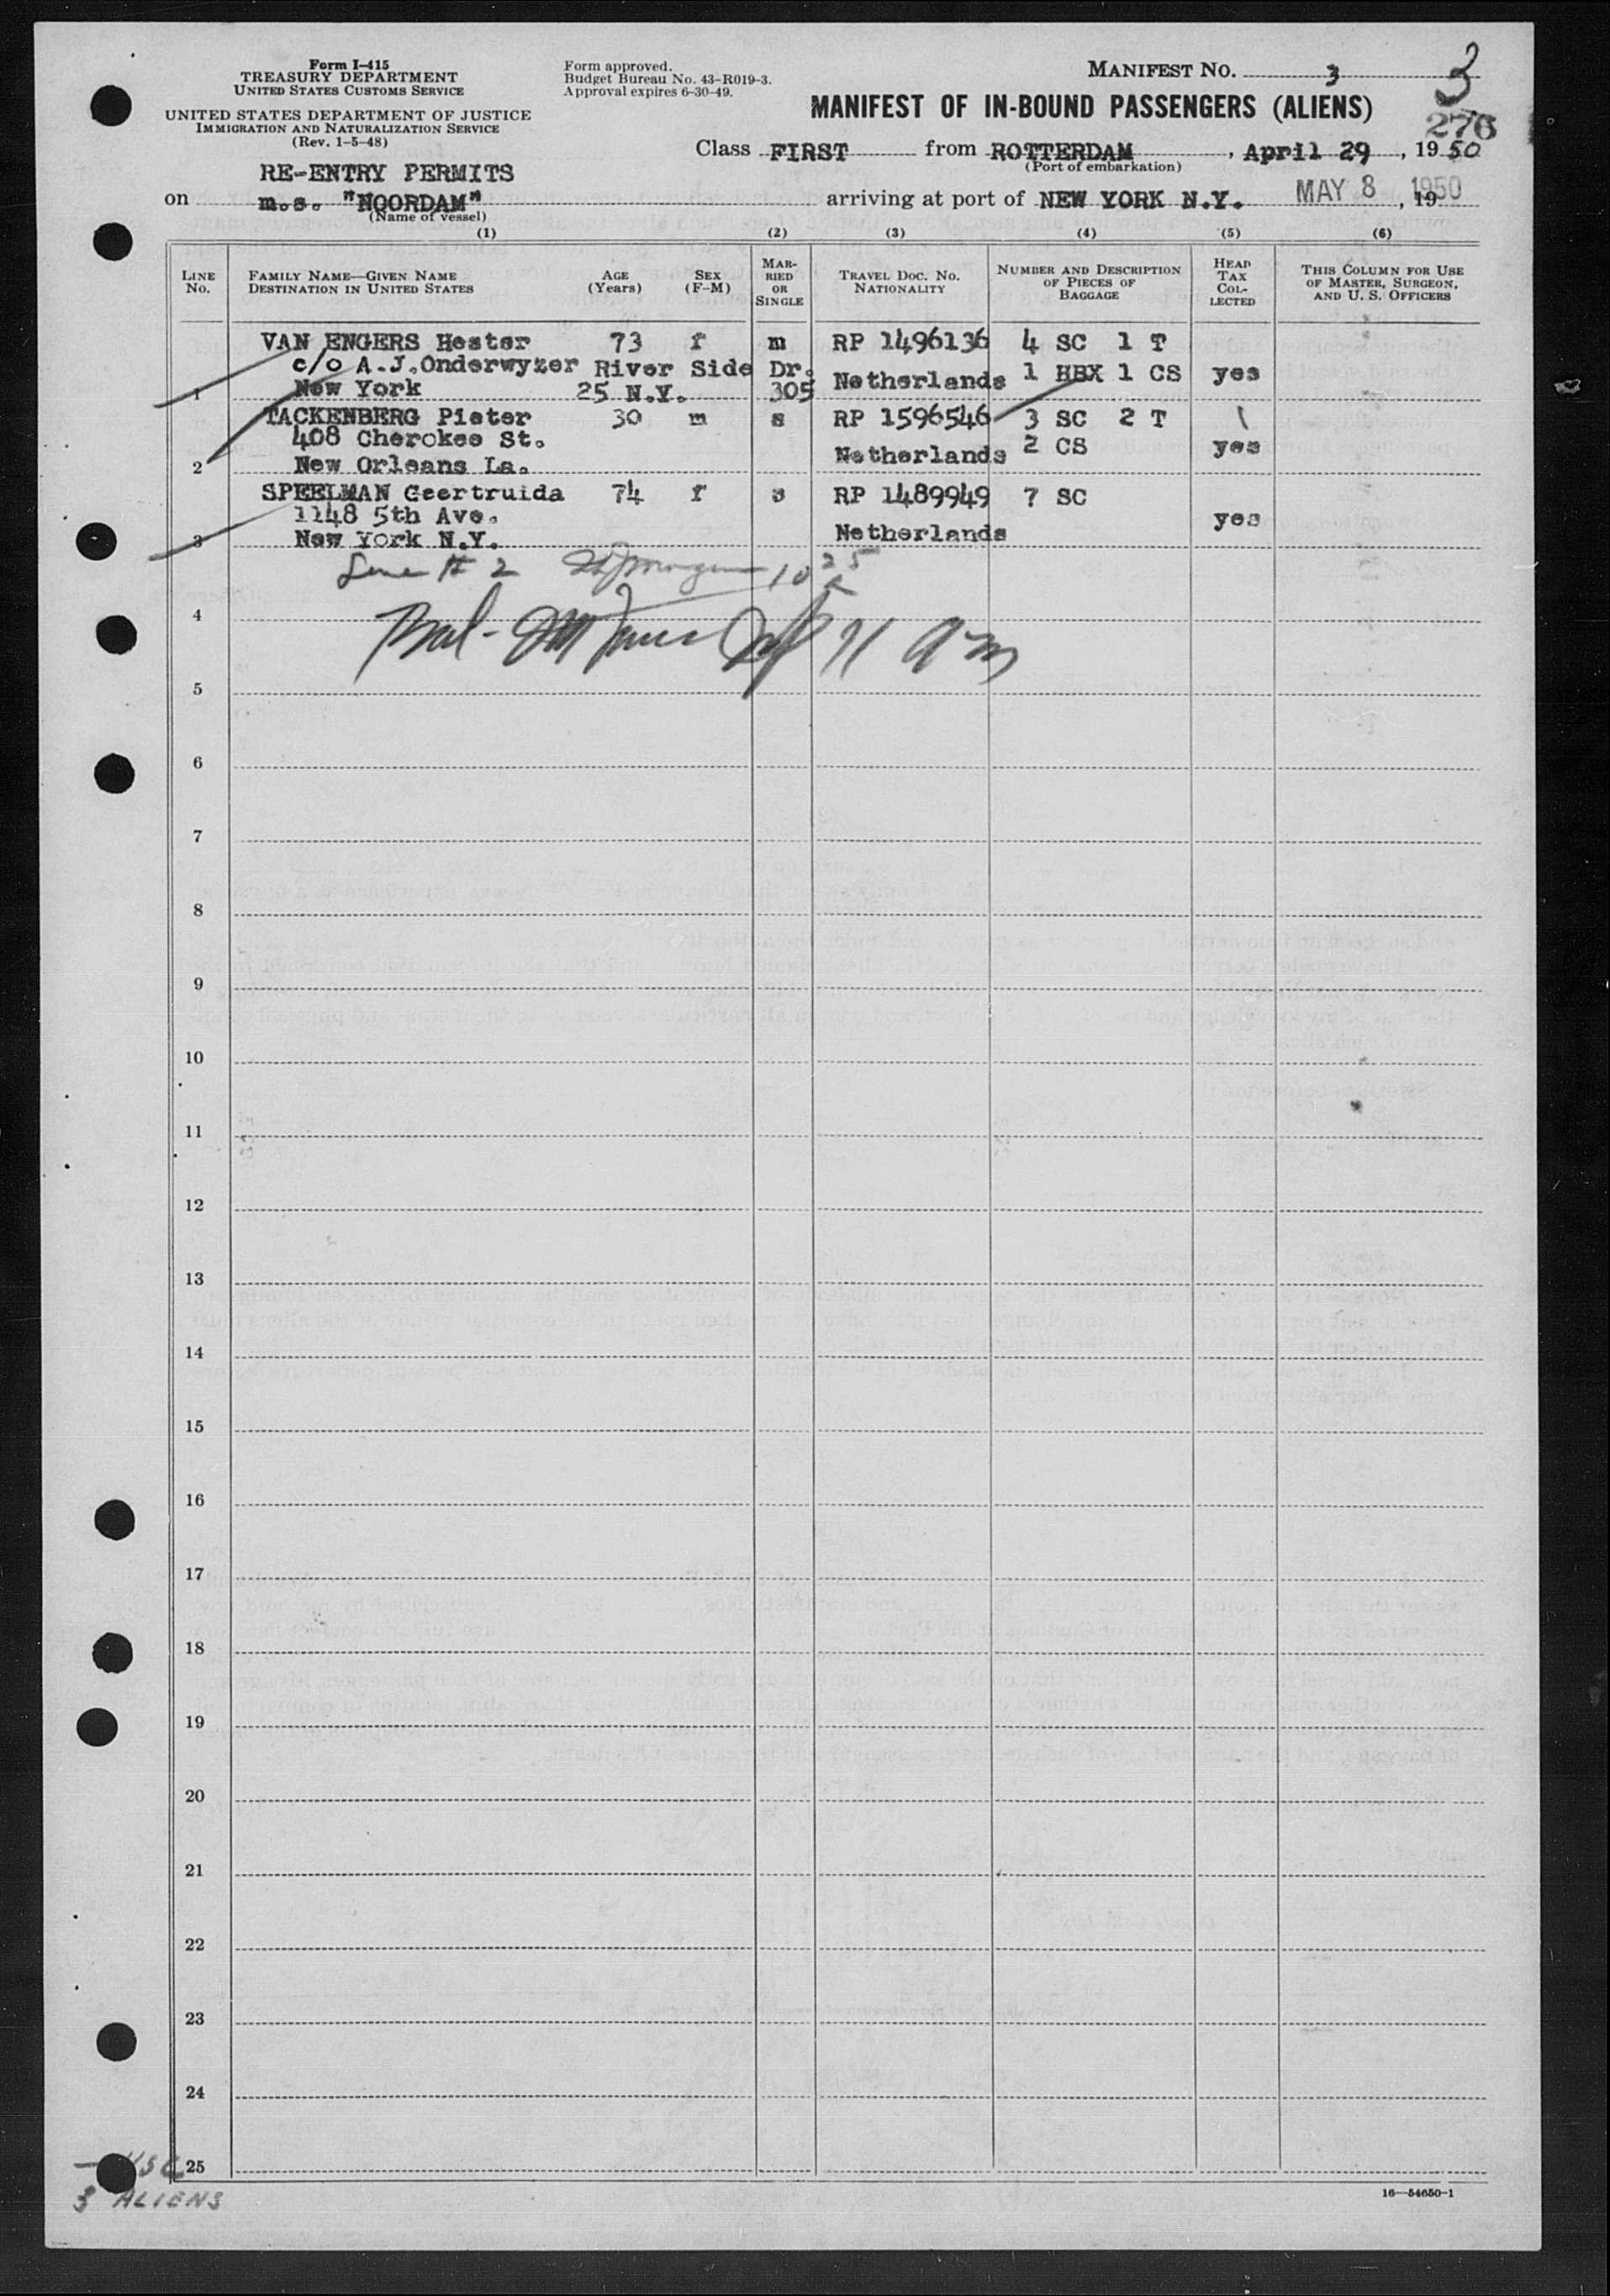 Form I-415
TREASURY DEPARTMENT
UNITED STATES CUSTOMS SERVICE
UNITED STATES DEPARTMENT OF JUSTICE
IMMIGRATION AND NATURALIZATION SERVICE
(Rev. 1-5-48)
Form approved.
Budget Bureau No. 43-R019-3.
Approval expires 6-30-49.
MANIFEST NO. 3
3
MANIFEST OF IN-BOUND PASSENGERS (ALIENS)
276
Class FIRST from ROTTERDAM, April 29, 1950
(Port of embarkation)
RE-ENTRY PERMITS
on m.s. "NOORDAM" arriving at port of NEW YORK N.Y. MAY 8 1950, 19
(Name of vessel)
(1) (2) (3) (4) (5) (6)
LINE No. FAMILY NAME—GIVEN NAME DESTINATION IN UNITED STATES AGE (Years) SEX (F-M) MARRIED OR SINGLE TRAVEL DOC. NO. NATIONALITY NUMBER AND DESCRIPTION OF PIECES OF BAGGAGE HEAD TAX COLLECTED THIS COLUMN FOR USE OF MASTER, SURGEON, AND U. S. OFFICERS
VAN ENGERS Hester 73 f m RP 1496136 4 SC 1 T
c/o A.J.Onderwyzer River Side Dr. Netherlands 1 HBX 1 CS yes
1 New York 25 N.Y. 305
TACKENBERG Pieter 30 m s RP 1596546 3 SC 2 T
408 Cherokee St. Netherlands 2 CS yes
2 New Orleans La.
SPEELMAN Geertruida 74 f s RP 1489949 7 SC
1148 5th Ave. yes
3 New York N.Y. Netherlands
Line # 2 10 25
4
11 am
5
6
7
8
9
10
11
12
13
14
15
16
17
18
19
20
21
22
23
24
25
— USC
3 ALIENS
16—54650-1